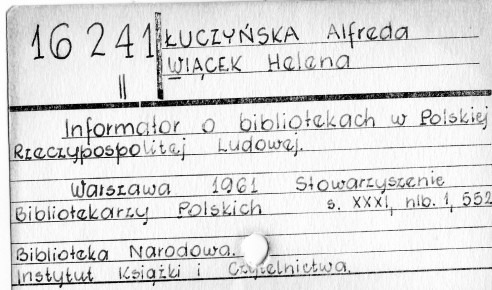 16 241 ŁUCZYŃSKA Alfreda
WIĄCEK Helena
II
Informator o bibliotekach w Polskiej
Rzeczypospolitej Ludowej.
Warszawa 1961 Stowarzyszenie
Bibliotekarzy Polskich s. XXXI, nlb. 1, 552
Biblioteka Narodowa.
Instytut Książki i Czytelnictwa.